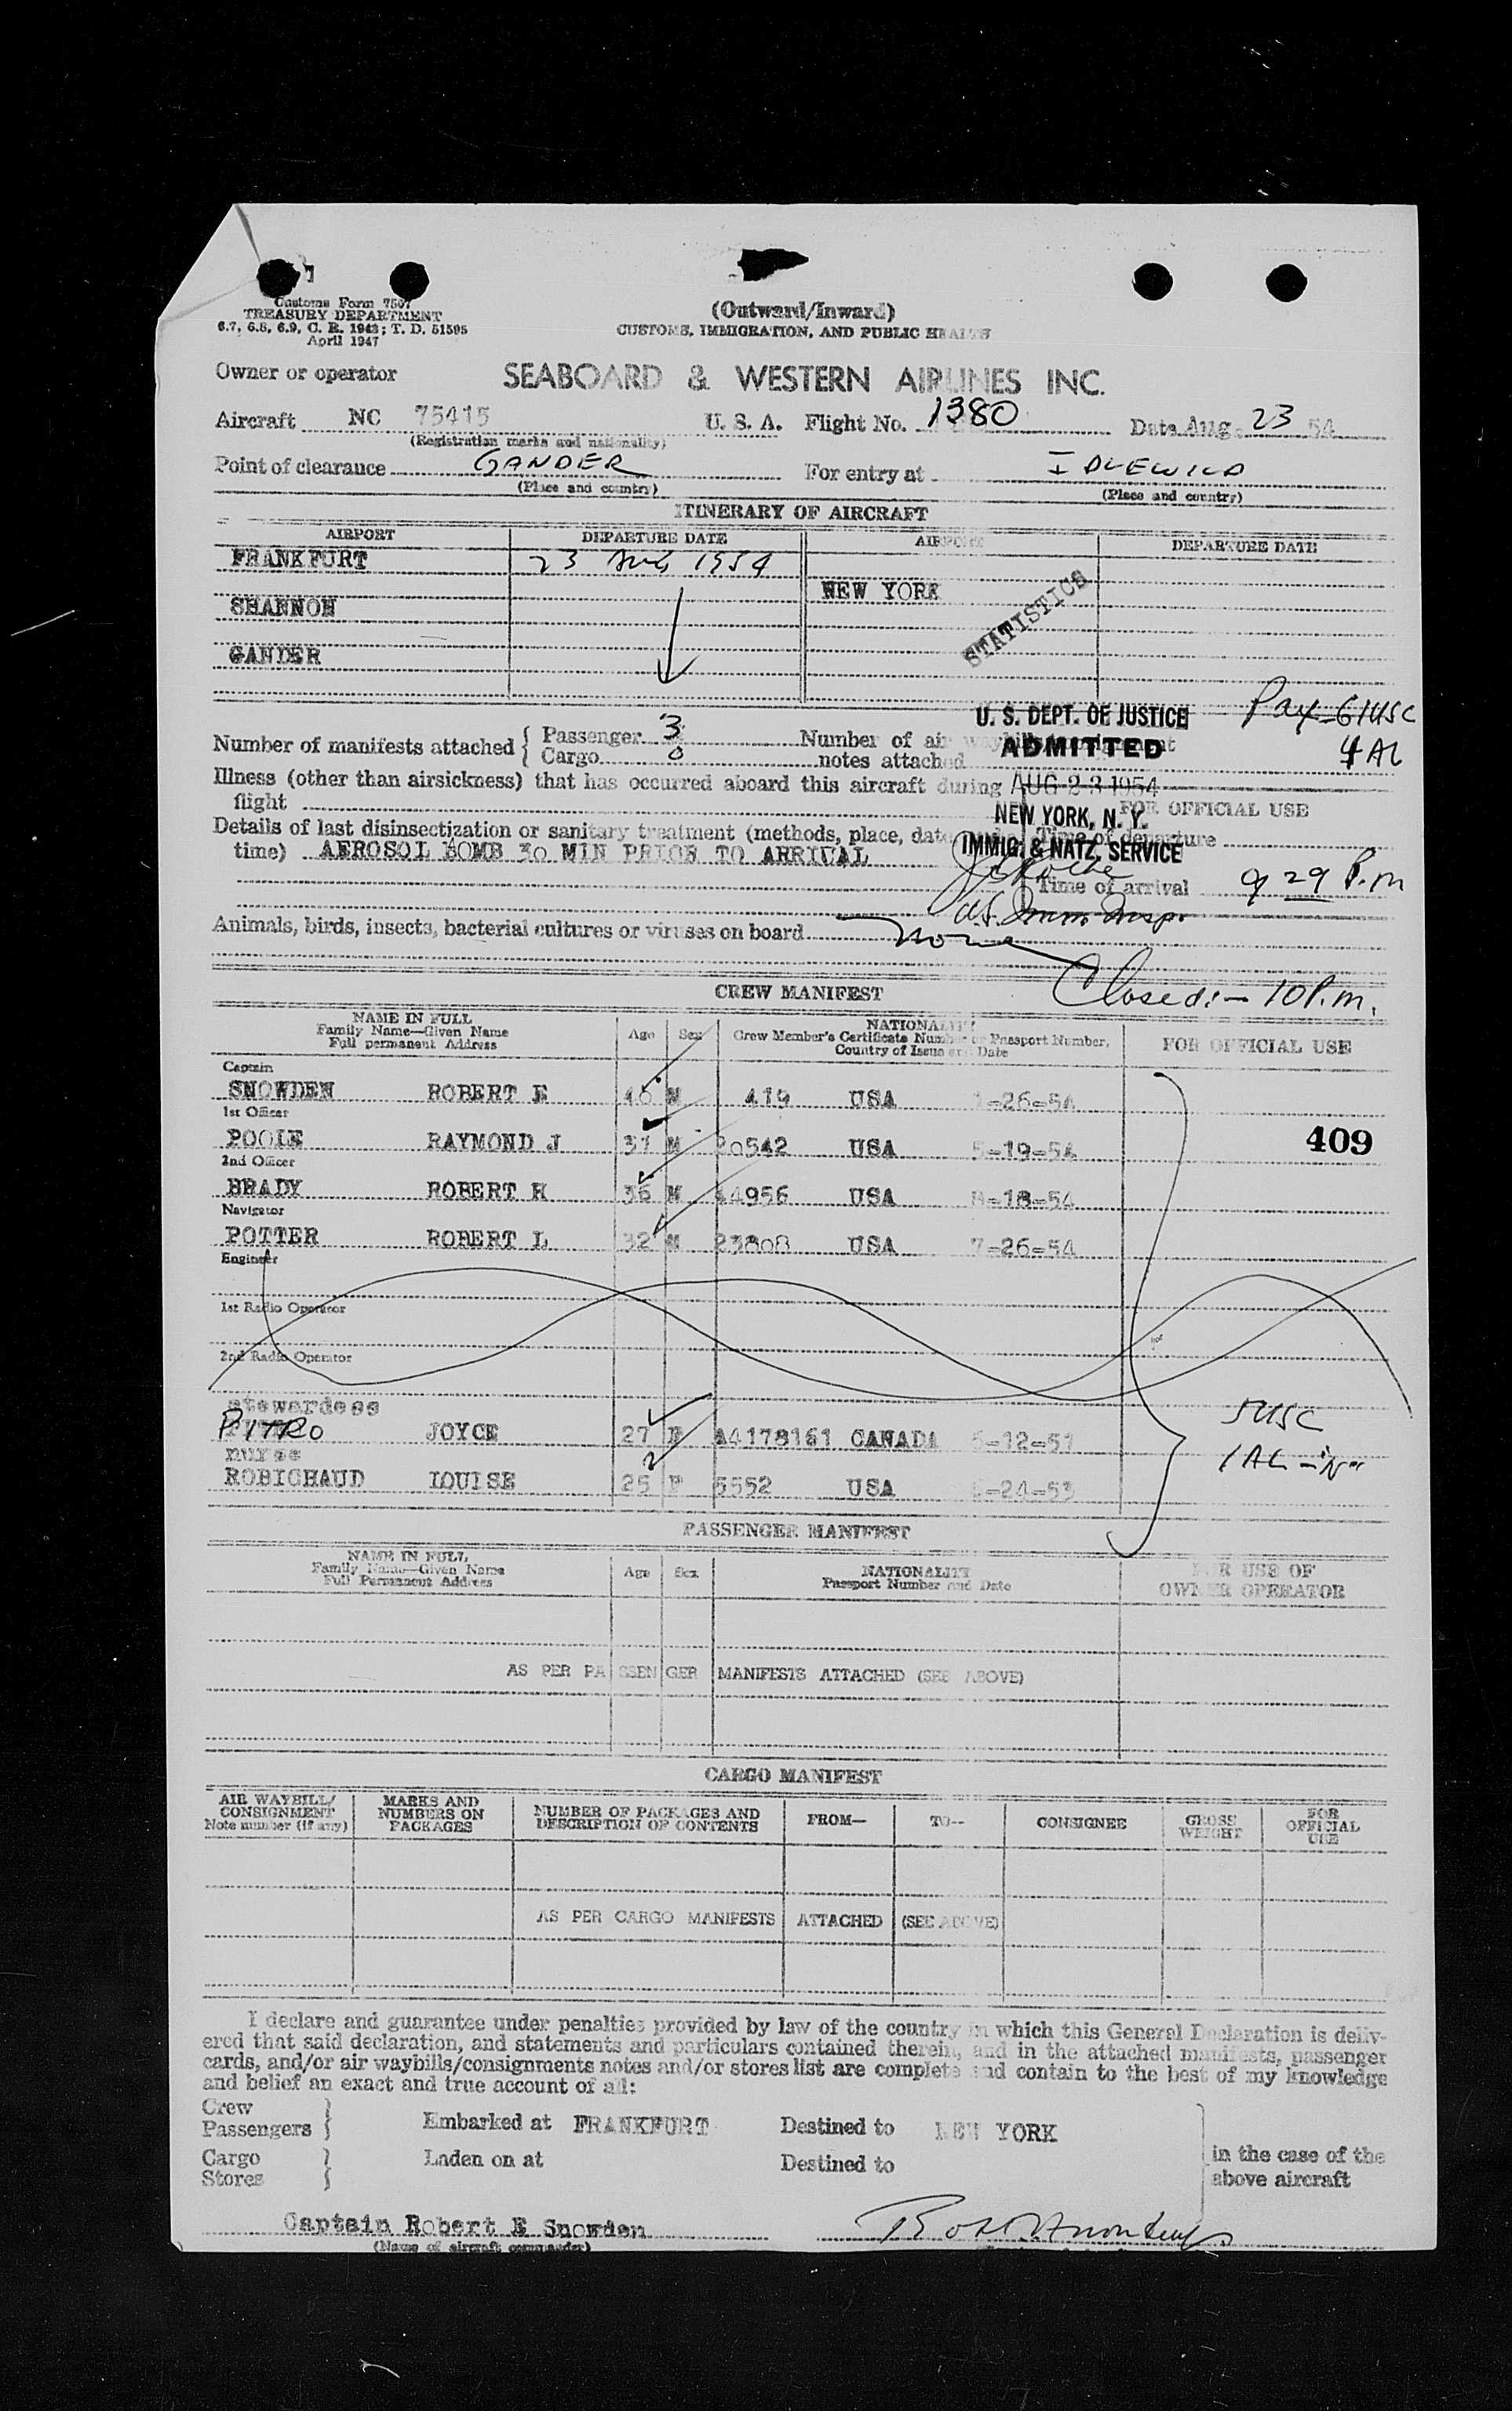 Customs Form 7507
TREASURY DEPARTMENT
6.7, 6.8, 6.9, C. R. 1943; T. D. 51595
April 1947
(Outward/Inward)
CUSTOMS, IMMIGRATION, AND PUBLIC HEALTH
Owner or operator SEABOARD & WESTERN AIRLINES INC.
Aircraft NC 75415 U. S. A. Flight No. 1380 Date Aug. 23 54
(Registration marks and nationality)
Point of clearance GANDER For entry at IDLEWILD
(Place and country) (Place and country)
ITINERARY OF AIRCRAFT
AIRPORT DEPARTURE DATE AIRPORT DEPARTURE DATE
FRANKFURT 23 Aug 1954
NEW YORK
SHANNON
STATISTICS
GANDER
U. S. DEPT. OF JUSTICE
ADMITTED
AUG 23 1954
NEW YORK, N. Y.
IMMIG. & NATZ. SERVICE
Pax - 61 USC
4 AL
Number of manifests attached { Passenger 3 Number of air waybills
Cargo 0 notes attached
Illness (other than airsickness) that has occurred aboard this aircraft during
flight
FOR OFFICIAL USE
Details of last disinsectization or sanitary treatment (methods, place, date
time) AEROSOL BOMB 30 MIN PRIOR TO ARRIVAL
Time of departure
Time of arrival 9 29 P.m
U.S. Imm. Insp.
Animals, birds, insects, bacterial cultures or viruses on board None
Closed:- 10 P.m.
CREW MANIFEST
NAME IN FULL
Family Name—Given Name
Full permanent Address
Age Sex
NATIONALITY
Crew Member's Certificate Number or Passport Number,
Country of Issue and Date
FOR OFFICIAL USE
Captain
SNOWDEN ROBERT E 40 M 419 USA -26-54
1st Officer
POOLE RAYMOND J 37 M 20542 USA 5-19-54
409
2nd Officer
BRADY ROBERT H 36 M 44956 USA -18-54
Navigator
POTTER ROBERT L 32 M 23808 USA 7-26-54
Engineer
1st Radio Operator
2nd Radio Operator
stewardess
PITRO JOYCE 27 F A4178161 CANADA -12-51
5 USC
nurse
1 AL
ROBICHAUD LOUISE 25 F 5552 USA -24-53
PASSENGER MANIFEST
NAME IN FULL
Family Name—Given Name
Full Permanent Address
Age Sex
NATIONALITY
Passport Number and Date
FOR USE OF
OWNER OPERATOR
AS PER PASSENGER MANIFESTS ATTACHED (SEE ABOVE)
CARGO MANIFEST
AIR WAYBILL/
CONSIGNMENT
Note number (if any)
MARKS AND
NUMBERS ON
PACKAGES
NUMBER OF PACKAGES AND
DESCRIPTION OF CONTENTS
FROM—
TO--
CONSIGNEE
GROSS
WEIGHT
FOR
OFFICIAL
USE
AS PER CARGO MANIFESTS ATTACHED (SEE ABOVE)
I declare and guarantee under penalties provided by law of the country in which this General Declaration is deliv-
ered that said declaration, and statements and particulars contained therein, and in the attached manifests, passenger
cards, and/or air waybills/consignments notes and/or stores list are complete and contain to the best of my knowledge
and belief an exact and true account of all:
Crew
Passengers } Embarked at FRANKFURT Destined to NEW YORK
Cargo
Stores } Laden on at Destined to
in the case of the
above aircraft
Captain Robert E Snowden
(Name of aircraft commander)